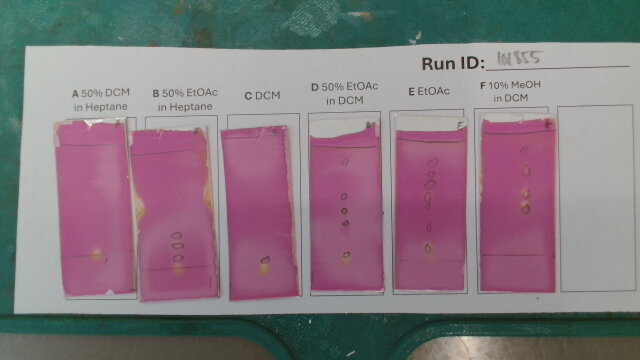 Run ID: 101855
A 50% DCM
in Heptane
B 50% EtOAc
in Heptane
C DCM
D 50% EtOAc
in DCM
E EtOAc
F 10% MeOH
in DCM